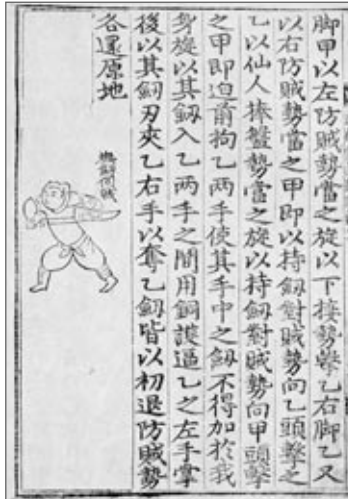 脚甲以左防賊勢當之旋以下接勢擊乙右脚乙又
以右防賊勢當之甲即以持劒對賊勢向乙頭擊之
乙以仙人捧盤勢當之旋以持劒對賊勢向甲頭擊
之甲即迫前拘乙兩手使其手中之劒不得加於我
身旋以其劒入乙兩手之間用銅護逼乙之左手掌
後以其劒刃夾乙右手以奪乙劒皆以初退防賊勢
各還原地